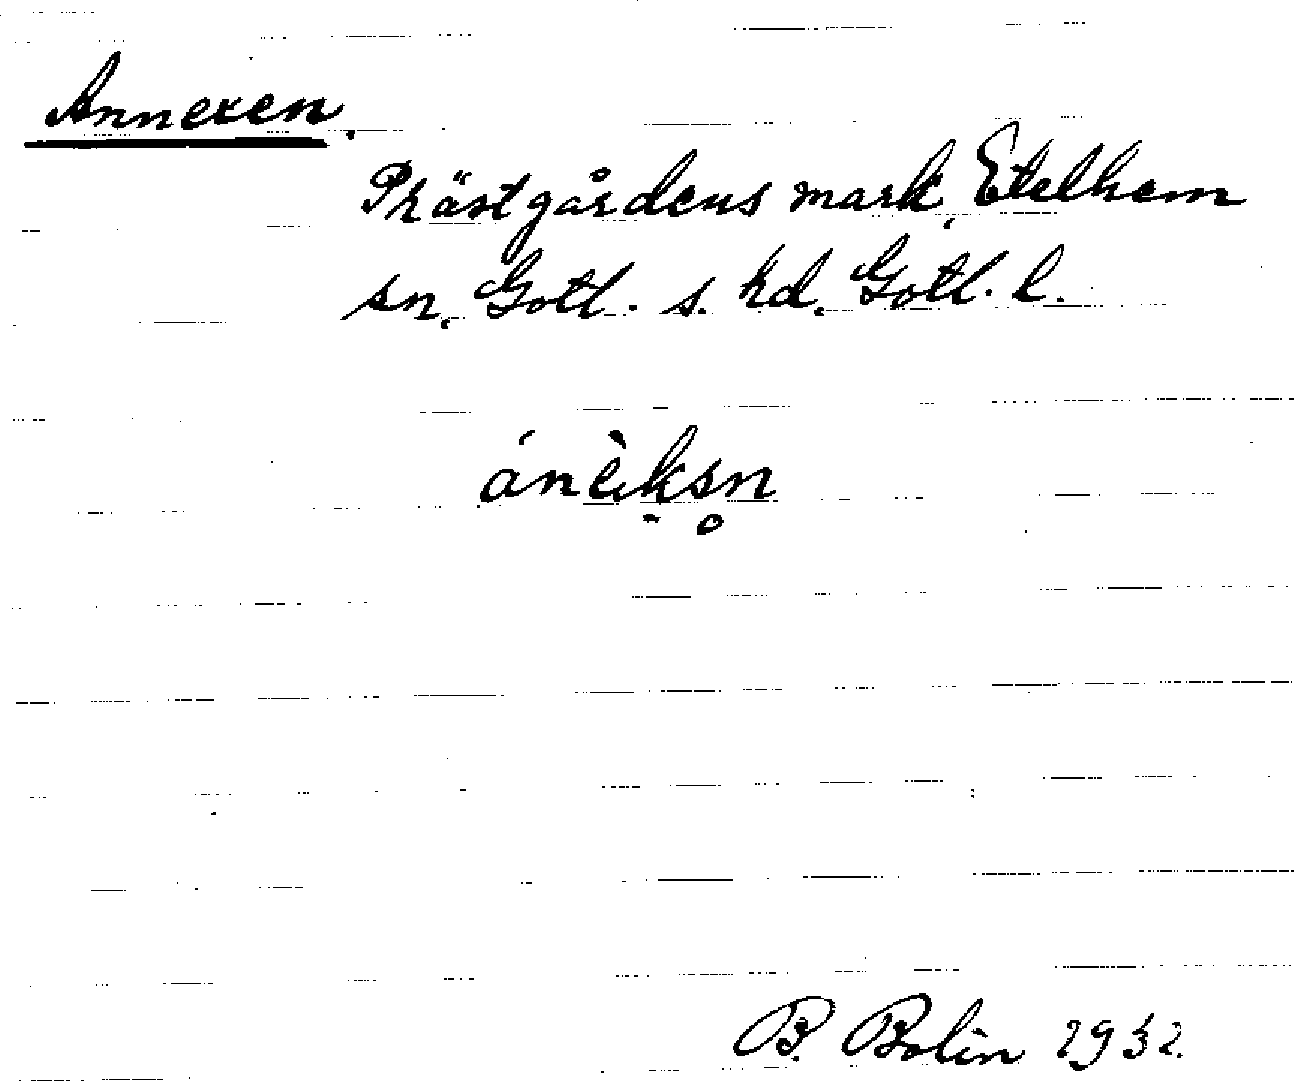 Annexen.
Prästgårdens mark, Etelhem
sn, Gotl. s. hd, Gotl. l.
ánèksn̥
B. Bolin 1932.